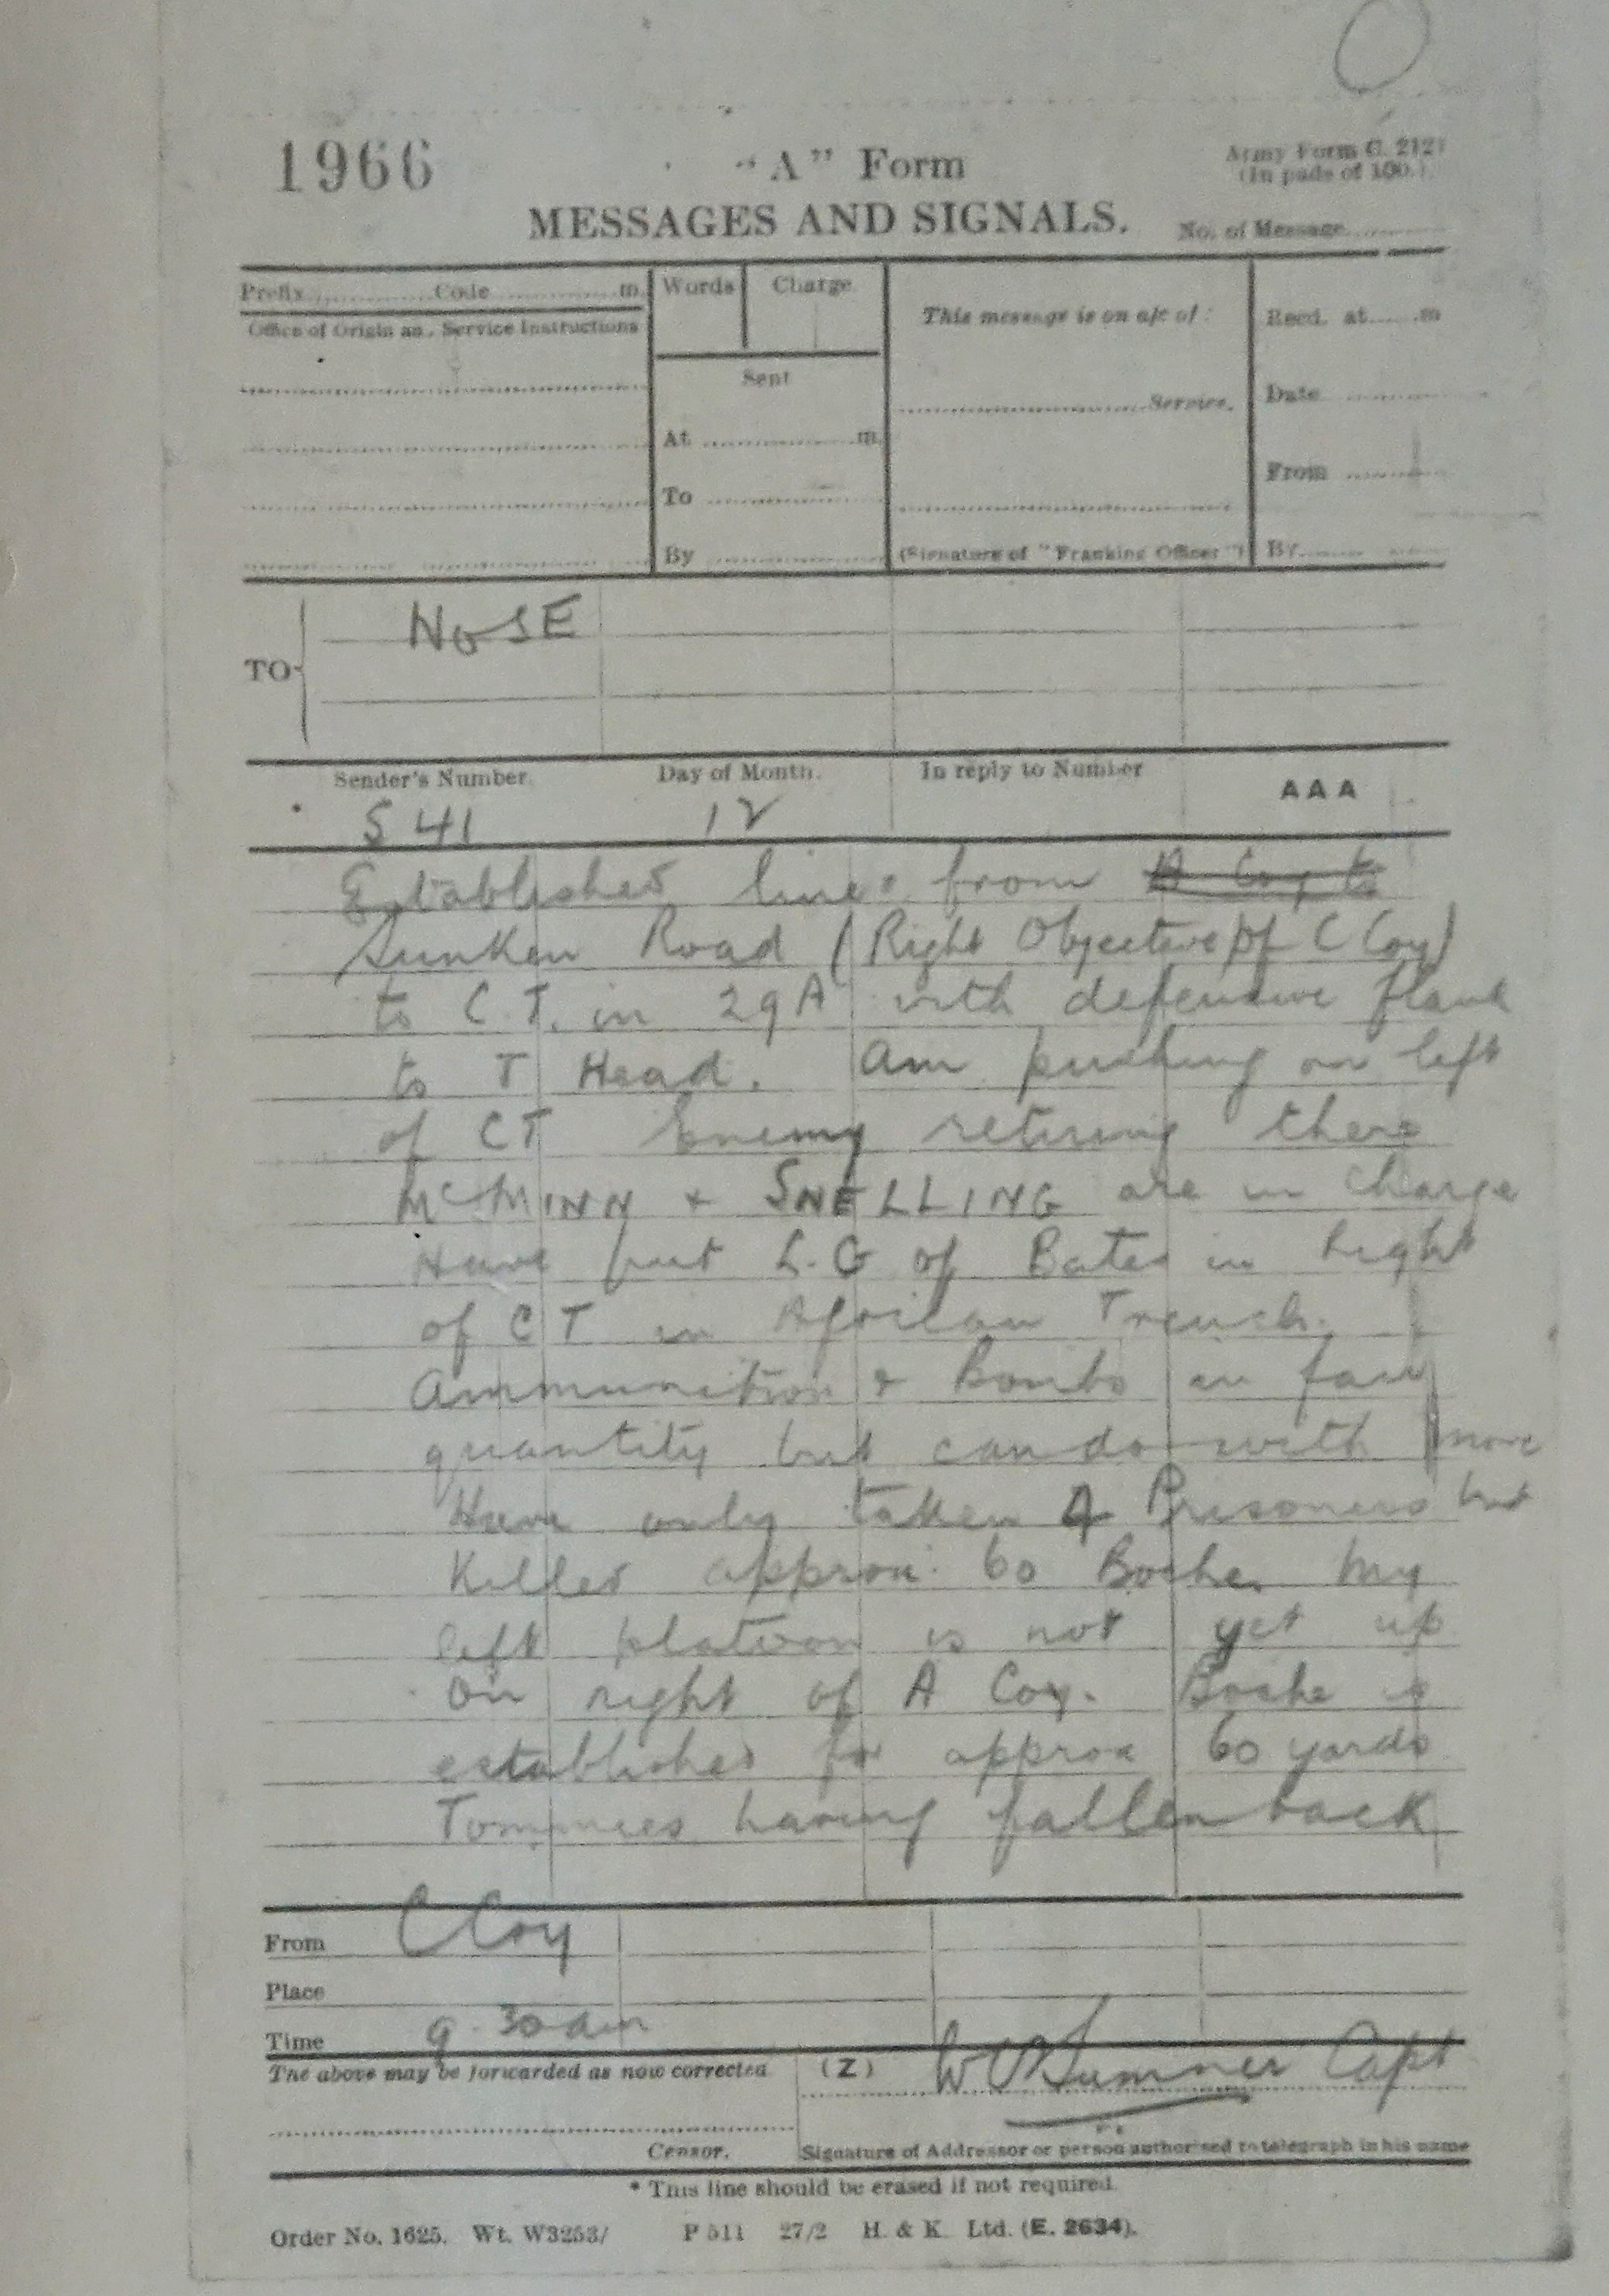 1966
"A" Form
Army Form C. 2121
(In pads of 100.)
MESSAGES AND SIGNALS.
No. of Message
Prefix Code m.
Words Charge
This message is on a/c of:
Recd. at m
Office of Origin an. Service Instructions
Sent
Service.
Date
At m.
From
To
By
(Signature of "Franking Officer")
By
TO
NOSE
Sender's Number. Day of Month. In reply to Number AAA
S 41 12
Established line from A Coy to
Sunken Road (Right Objective of C Coy)
to C.T. in 29A with defensive flank
to T Head. Am pushing on left
of CT Enemy retiring there
McMINN + SNELLING are in charge
Have put L.G of Bates in right
of CT in African Trench.
Ammunition & Bombs in fair
quantity but can do with more
Have only taken 4 Prisoners but
Killed approx. 60 Boche. My
left platoon is not yet up
on right of A Coy. Boche is
established for approx 60 yards
Tommies having fallen back
From C Coy
Place
Time 9.30 am
The above may be forwarded as now corrected (Z) Sumner Capt
Censor. Signature of Addressor or person authorised to telegraph in his name
* This line should be erased if not required.
Order No. 1625. Wt. W3253/ P 511 27/2 H. & K. Ltd. (E. 2634).